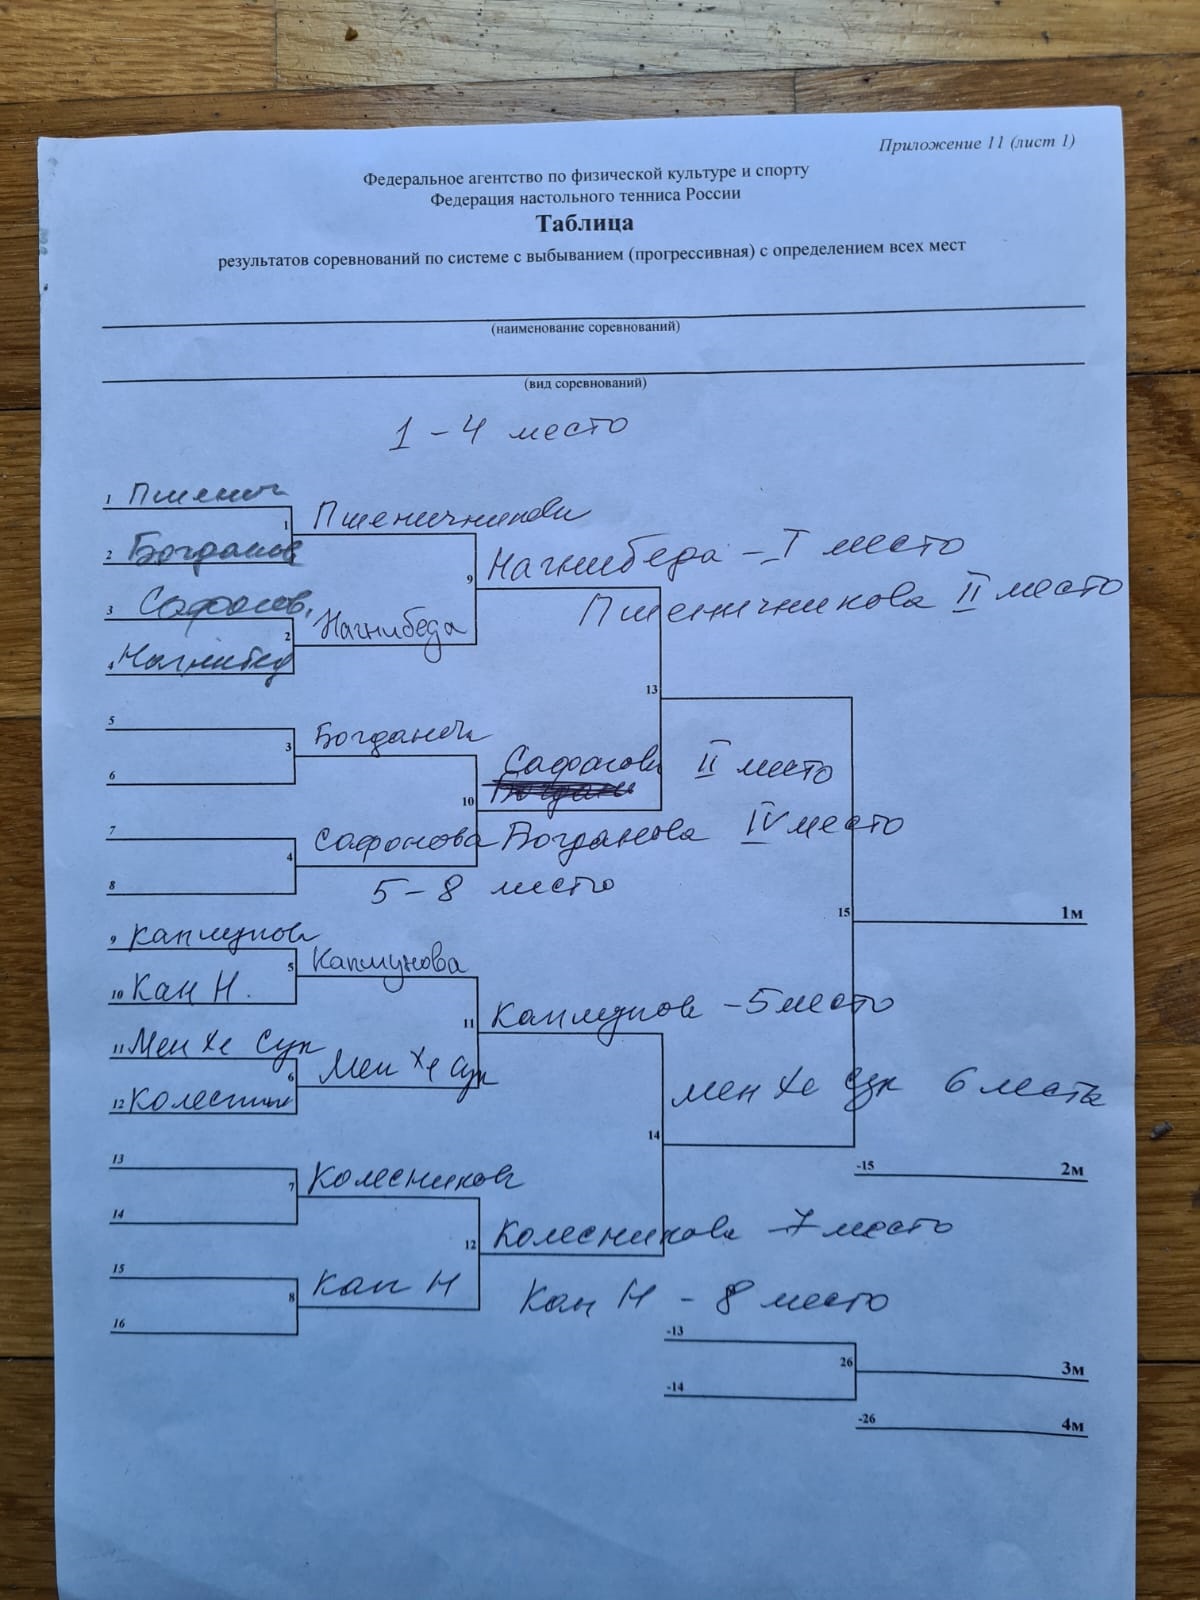 Приложение 11 (лист 1)
Федеральное агентство по физической культуре и спорту
Федерация настольного тенниса России
Таблица
результатов соревнований по системе с выбыванием (прогрессивная) с определением всех мест
(наименование соревнований)
(вид соревнований)
1 - 4 место
1 Пшенич
1 Пшеничникова
2 Богданов
9 Нагнибеда - I место
Пшеничникова II место
3 Сафонов.
2 Нагнибеда
4 Нагнибед
13
5
3 Богданова
6
10 Сафонова II место
7
4 Сафонова Богданова IV место
8
5 - 8 место
15 1м
9 Каплунова
5 Каплунова
10 Кан Н.
11 Каплунова - 5 место
11 Мен Хе Сук
6 Мен Хе Сук
12 Колесник
14 Мен Хе Сук 6 место
13
7 Колесникова
14
-15 2м
12 Колесникова - 7 место
15
8 Кан Н
16
Кан Н - 8 место
-13
26 3м
-14
-26 4м